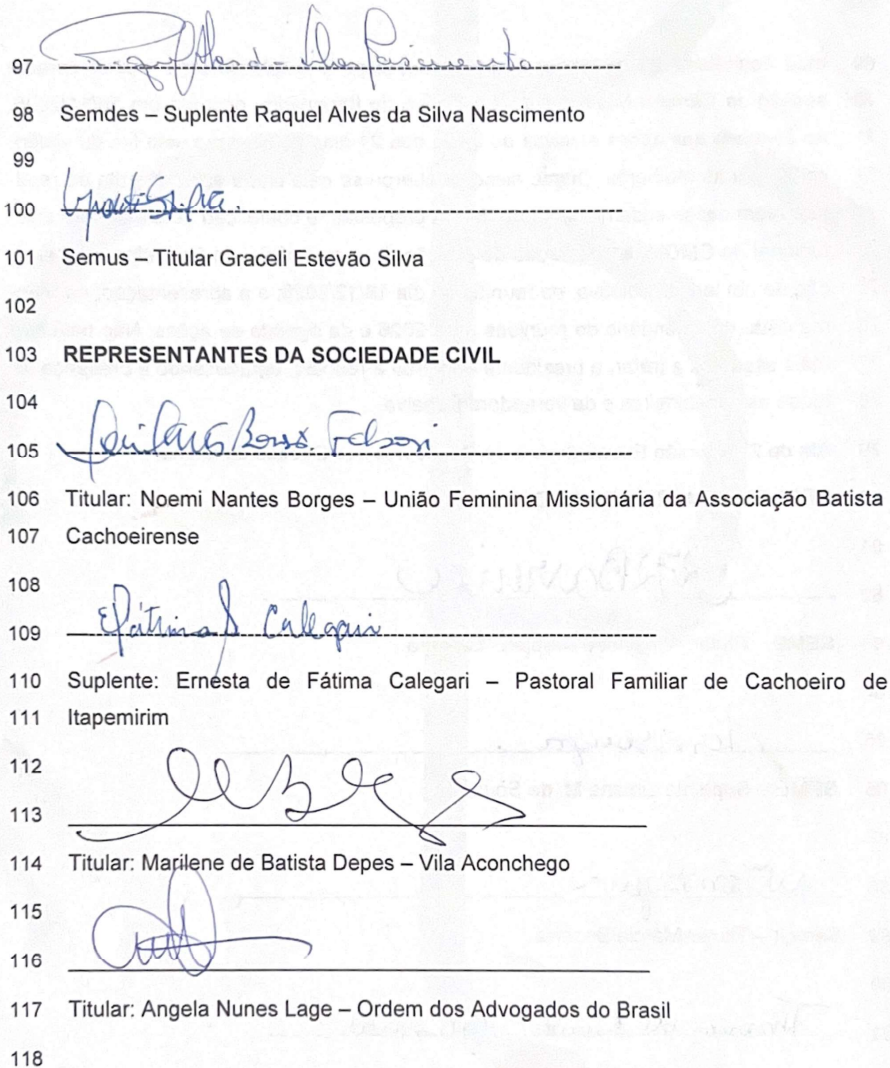 97 Raquel Alves da Silva Nascimento
98 Semdes – Suplente Raquel Alves da Silva Nascimento
99
100
101 Semus – Titular Graceli Estevão Silva
102
103 REPRESENTANTES DA SOCIEDADE CIVIL
104
105
106 Titular: Noemi Nantes Borges – União Feminina Missionária da Associação Batista
107 Cachoeirense
108
109 Calegari
110 Suplente: Ernesta de Fátima Calegari – Pastoral Familiar de Cachoeiro de
111 Itapemirim
112
113
114 Titular: Marilene de Batista Depes – Vila Aconchego
115
116
117 Titular: Angela Nunes Lage – Ordem dos Advogados do Brasil
118